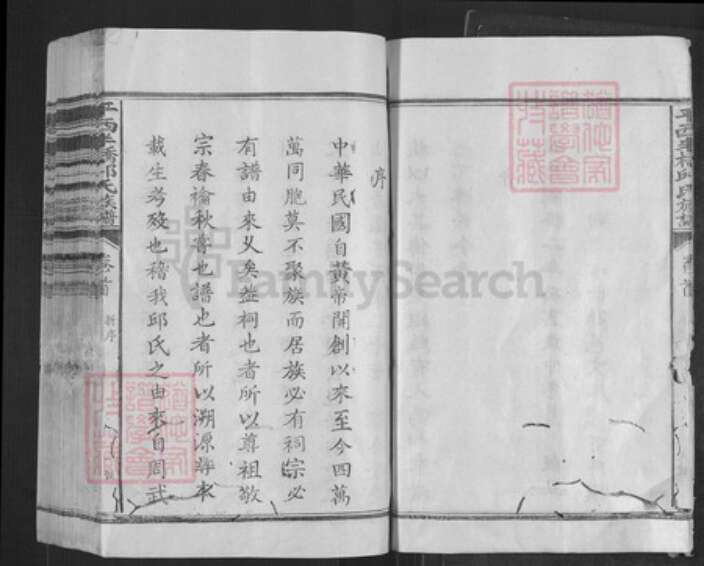 序
中華民國自黃帝開創以來至今四萬
萬同胞莫不聚族而居族必有祠宗必
有譜由來久矣葢祠也者所以尊祖敬
宗春禴秋嘗也譜也者所以溯源
載生考歿也稽我邱氏之由來自周武
邱氏族譜
卷首
新序
邱氏族譜
卷首
FamilySearch